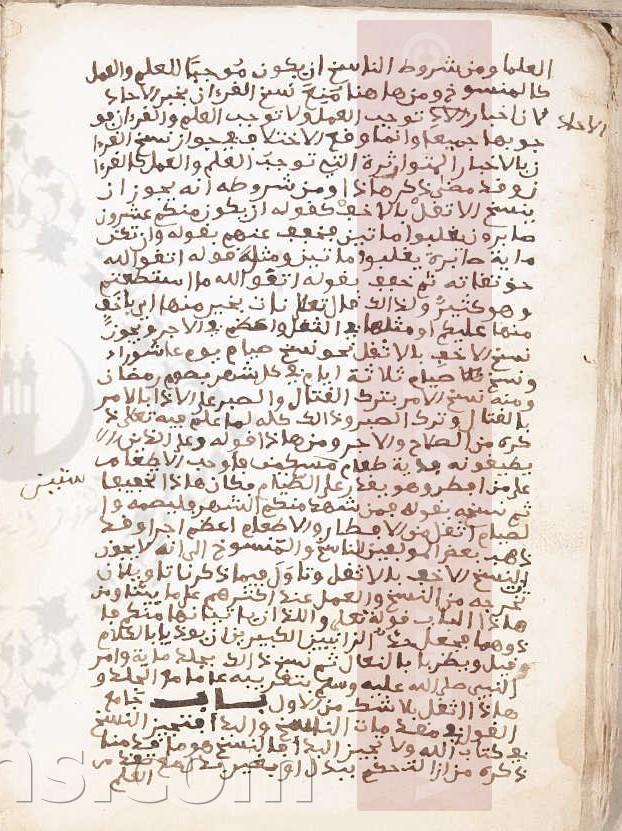 العلما ومن شروط الناسخ ان يكون موجبا للعلم والعمل
كالمنسوخ ومن هاهنا منع نسخ القرءان بخبر الاحاد
لان اخبار الاحاد توجب العمل ولا توجب العلم والقرءان
جوبها جميعا وانما وقع الاختلاف في جواز نسخ القرا
ن بالاخبار المتواترة التي توجب العلم والعمل كالقرا
ن وقد مضى ذكر هاذا ومن شروطه انه يجوز ان
ينسخ الاثقل بالاخف كقوله ان يكون منكم عشرون
صابرون يغلبوا مائتين فخفف عنهم بقوله وان تكن
ماية صابرة يغلبوا مائتين ومثله قوله اتقوا الله
حق تقاته ثم خفف بقوله اتقوا الله ما استطعتم
وهو كثير ولذالك قال تعلى نات بخير منها اي باخف
منها عليكم او مثلها في الثقل واعظم في الاجر ويجوز
نسخ الاخف بالاثقل نحو نسخ صيام يوم عاشوراء
ونسخ صيام ثلاثة ايام في كل شهر بصوم رمضان
ومنه نسخ الامر بترك القتال والصبر على الاذا بالامر
بالقتال وترك الصبر وذالك كله لما علم فيه تعلى ذ
كره من الصلاح والاجر ومن هاذا قوله وعلى الذين
يطيقونه فدية طعام مسكين فاوجب الاطعام
على من افطر وهو يقدر على الصيام فكان هاذا تخفيفا
ثم نسخه بقوله فمن شهد منكم الشهر فليصمه وا
لصيام اثقل من الافطار والاطعام اعظم اجرا وقد
ذهب بعض المولفين للناسخ والمنسوخ الى انه لا يجوز
النسخ الاخف بالاثقل وتاول فيما ذكرنا تاويلا
يخرجه من النسخ والعمل عند اكثرهم على ما بينا ومن
هاذا الباب قوله تعلى واللذان ياتيانها منكم فا
ذوهما فجعل حد الزانيين البكرين ان يوذيا بالكلام
وقيل ويضربا بالنعال ثم نسخ ذالك بجلد ماية وامر
النبي صلى الله عليه وسلم بتغريبه عاما مع الجلد و
هاذا اثقل بلا شك من الاول باب جامع
القول في مقدمات الناسخ والبدا فنجيز النسخ
في كتاب الله ولا نجيز البدا فالنسخ هو ما قدمنا
ذكره من ازالة حكم ببدل او بغير
العلم
الاحاد